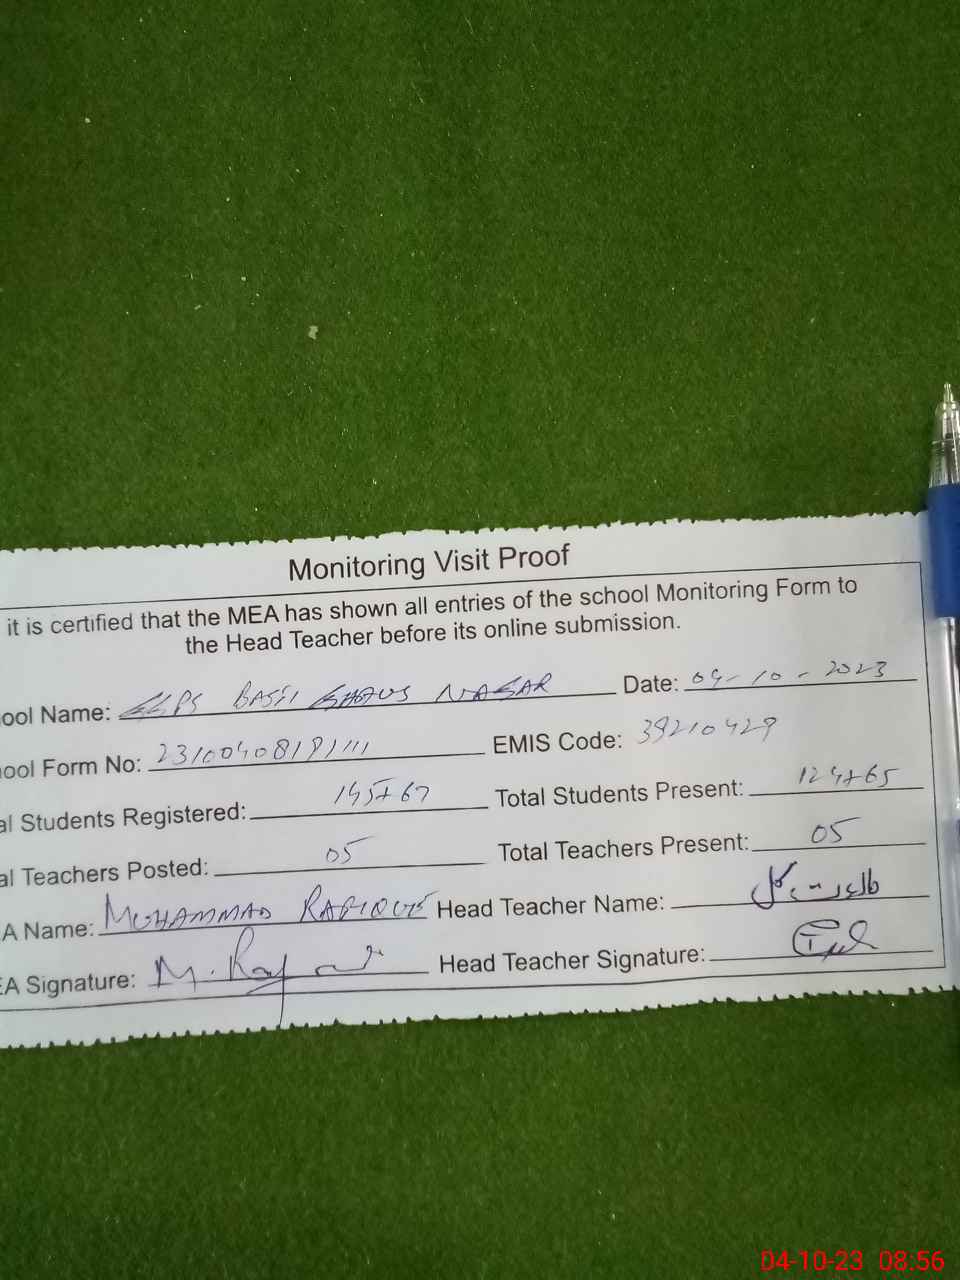 Monitoring Visit Proof
it is certified that the MEA has shown all entries of the school Monitoring Form to
the Head Teacher before its online submission.
ool Name: GGPS BASTI GHAUS NAGAR Date: 04-10-2023
ool Form No: EMIS Code: 39210429
al Students Registered: 145+67 Total Students Present: 124+65
al Teachers Posted: 05 Total Teachers Present: 05
A Name: MUHAMMAD RAFIQUE Head Teacher Name:
EA Signature: Head Teacher Signature:
04-10-23 08:56